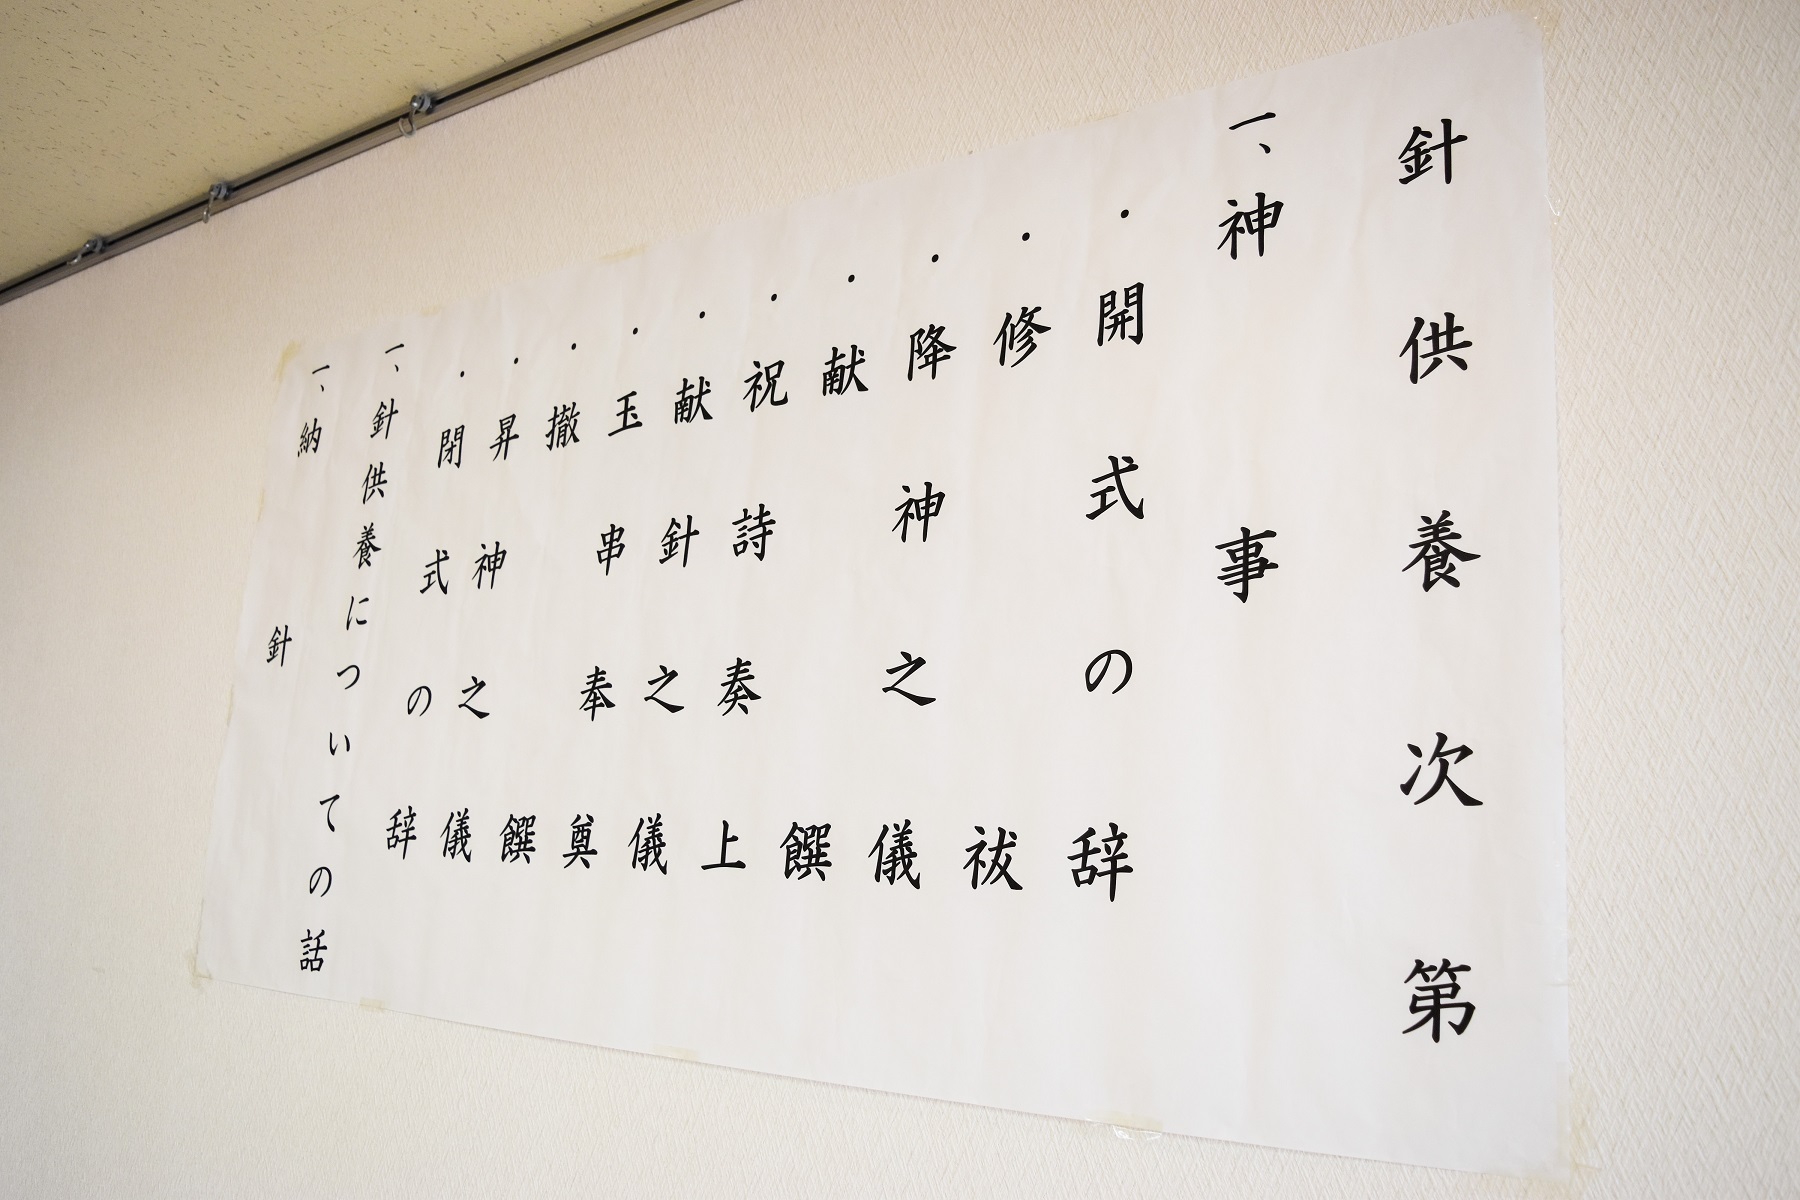 針供養次第
一、神事
・開式の辞
・修祓
・降神之儀
・献饌
・祝詩奏上
・献針之儀
・玉串奉奠
・撤饌
・昇神之儀
・閉式の辞
一、針供養についての話
一、納針